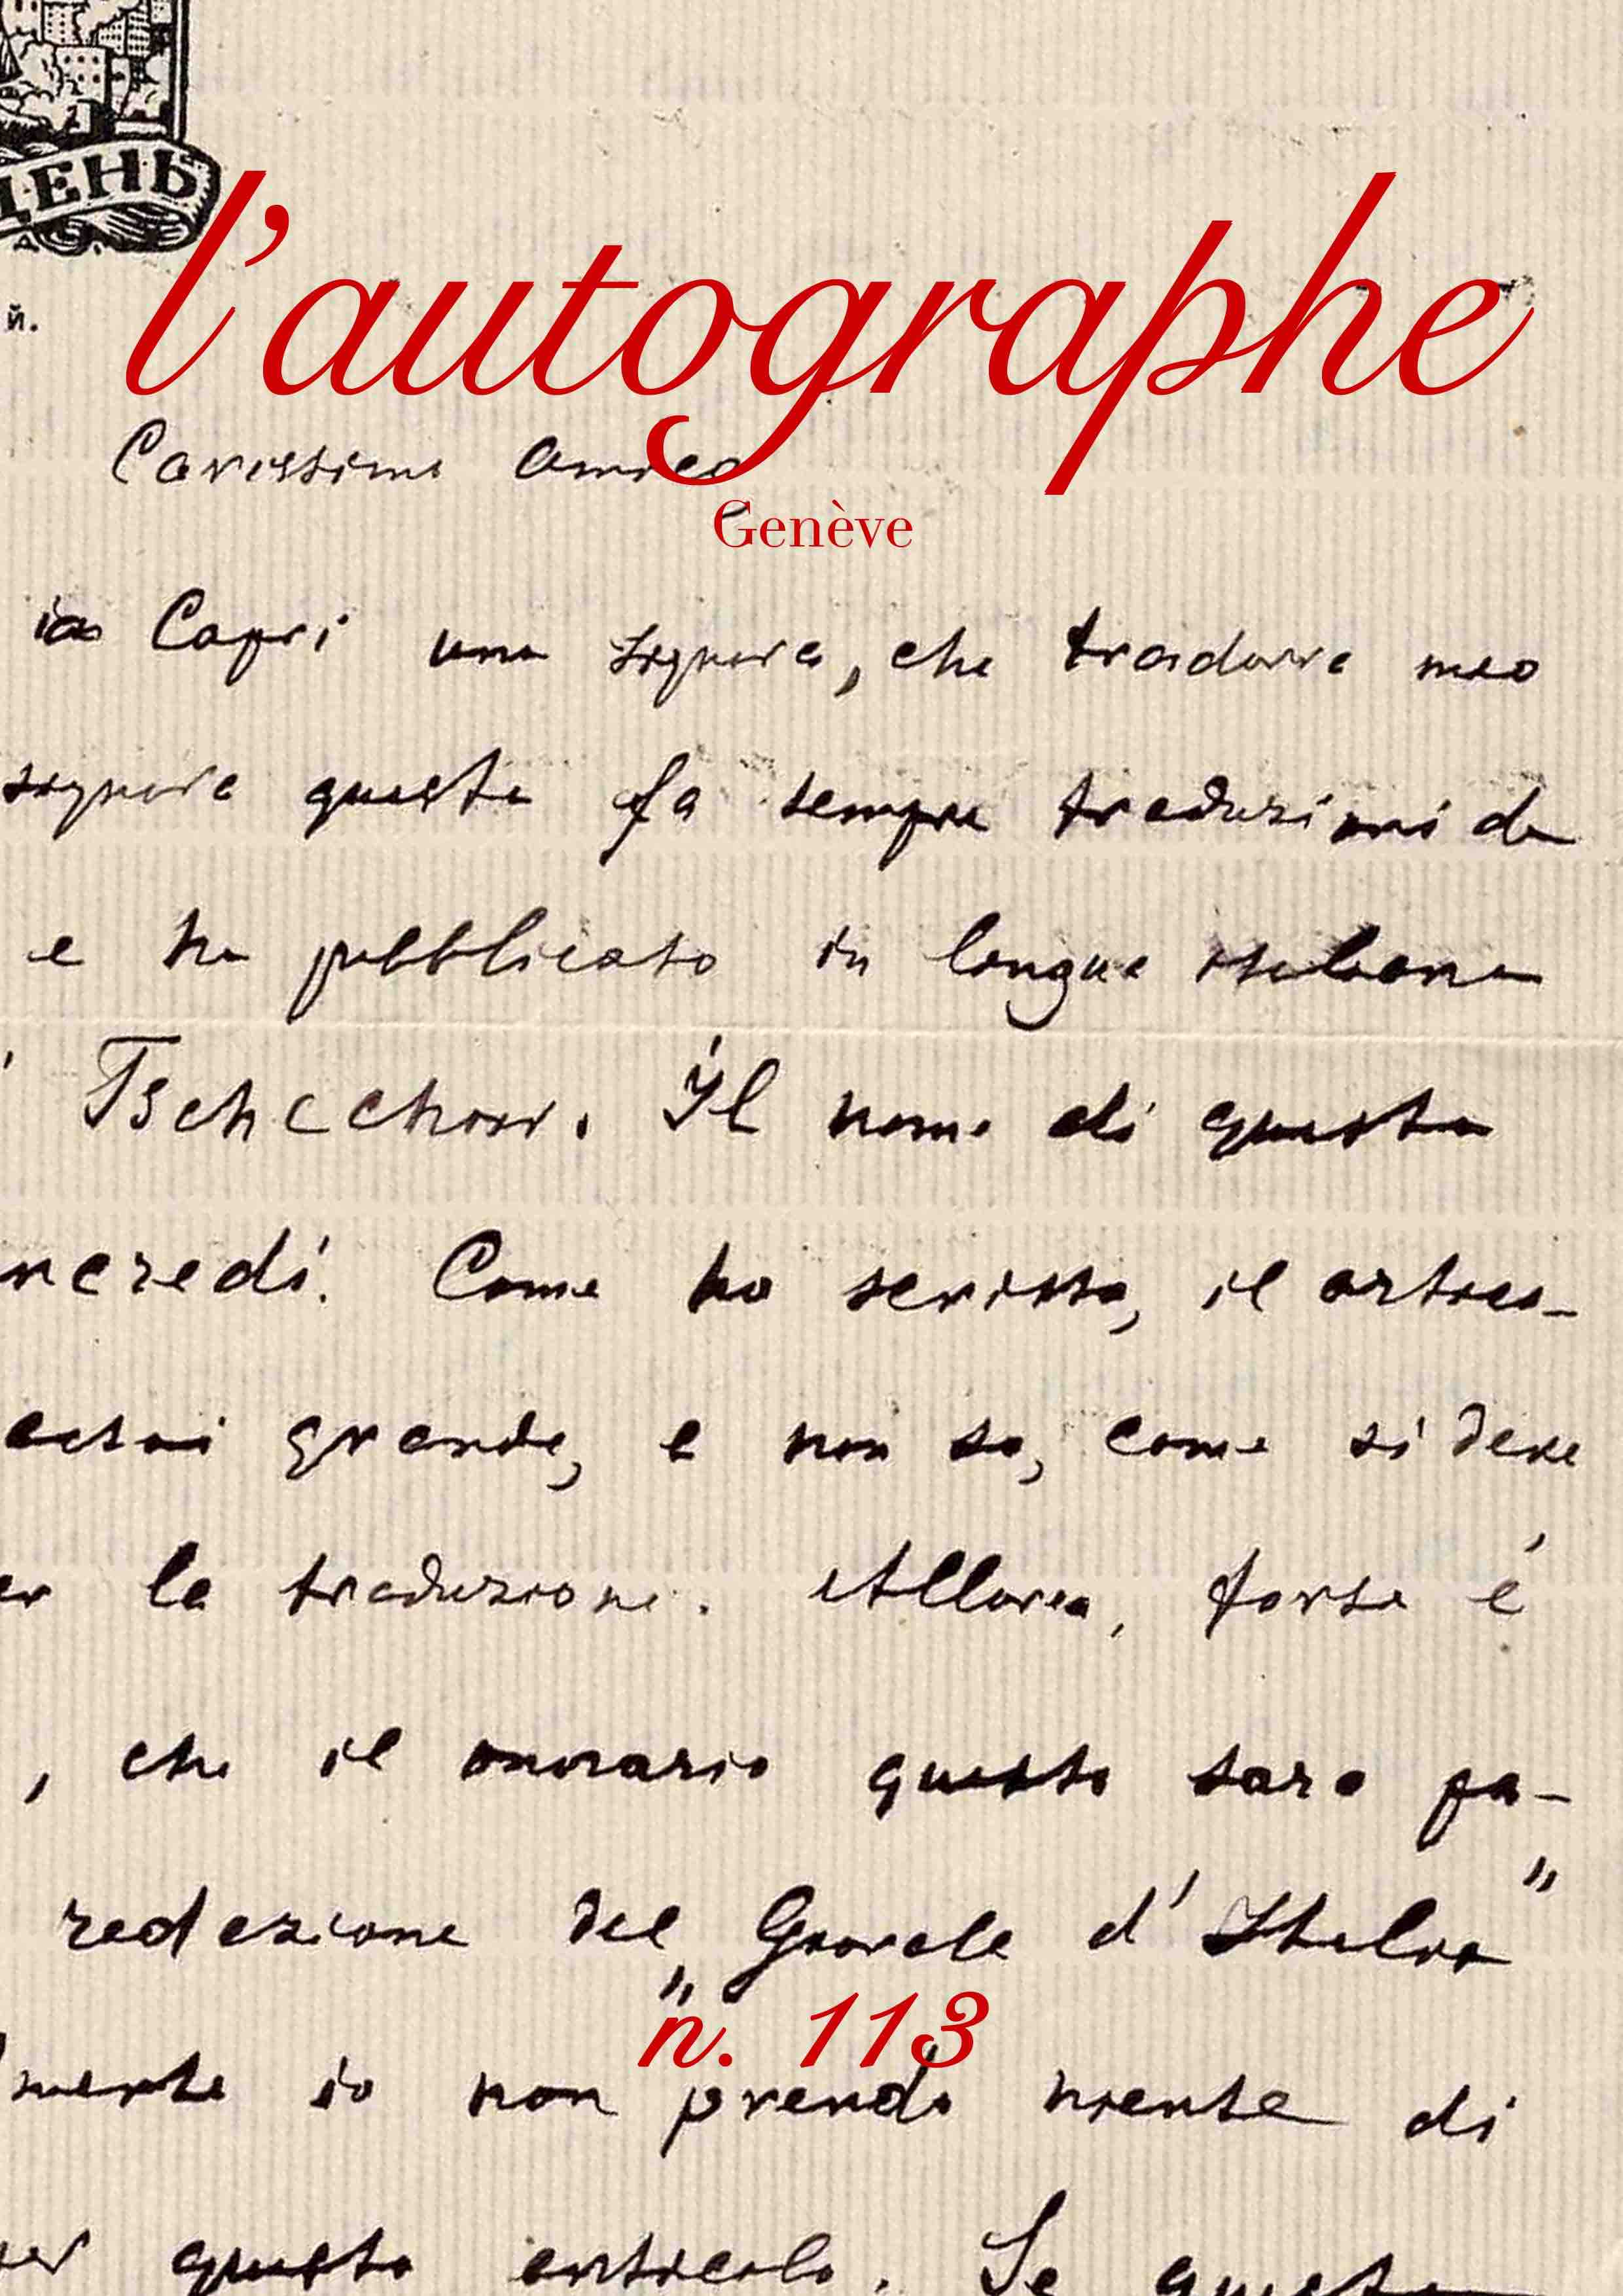 ДЕНЬ
l'autographe
й.
Carissimo amico
Genève
Capri una signora, che tradurre mio
signora questa fa sempre traduzioni da
e ha pubblicato in lingua italiana
Tschechow. Il nome di questa
ncredi. Come ho scritto, il artico-
grande, e non so, come si deve
er la traduzione. Allora, forse é
, che il onorario questo sara pa-
redazione del „Giornale d'Italia"
n. 113
mente io non prendo niente di
er questo articolo. Se questa